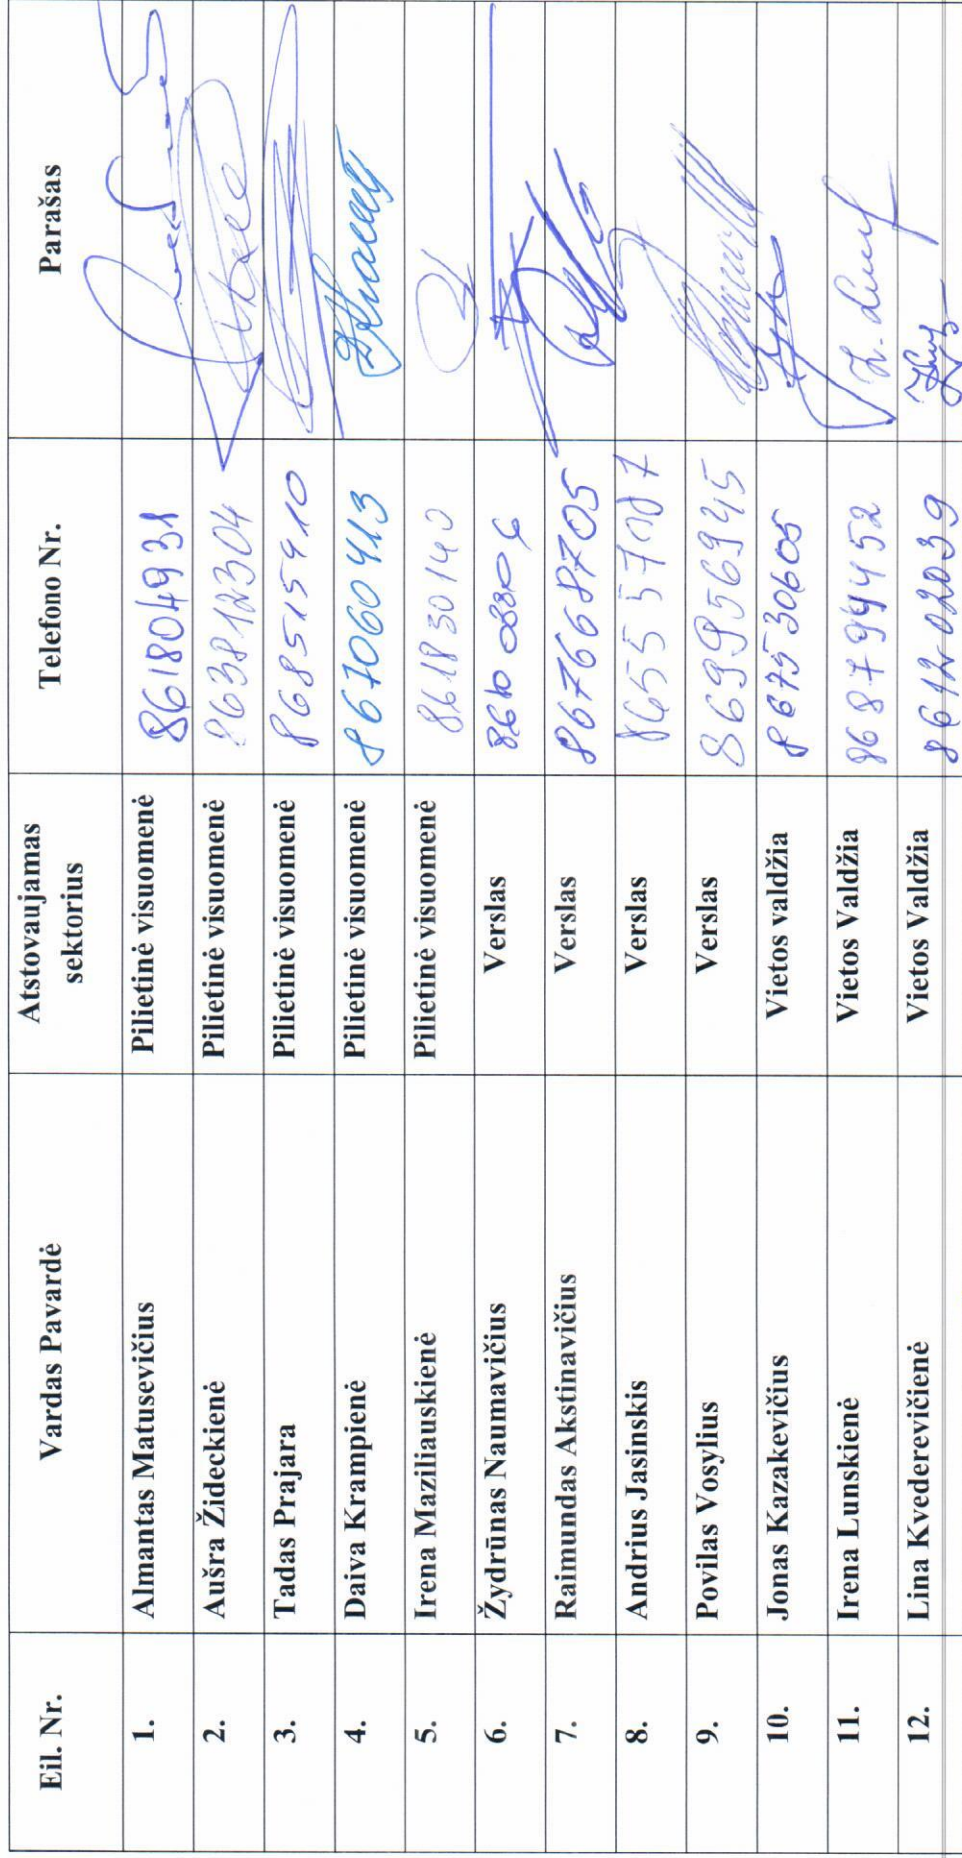 Eil. Nr. Vardas Pavardė Atstovaujamas sektorius Telefono Nr. Parašas
1. Almantas Matusevičius Pilietinė visuomenė 861804931
2. Aušra Žideckienė Pilietinė visuomenė 863812304
3. Tadas Prajara Pilietinė visuomenė 868515410
4. Daiva Krampienė Pilietinė visuomenė 867060413
5. Irena Maziliauskienė Pilietinė visuomenė 861830140
6. Žydrūnas Naumavičius Verslas
7. Raimundas Akstinavičius Verslas 867668705
8. Andrius Jasinskis Verslas
9. Povilas Vosylius Verslas 869956945
10. Jonas Kazakevičius Vietos valdžia 867530605
11. Irena Lunskienė Vietos Valdžia 868799452
12. Lina Kvederevičienė Vietos Valdžia 861202039